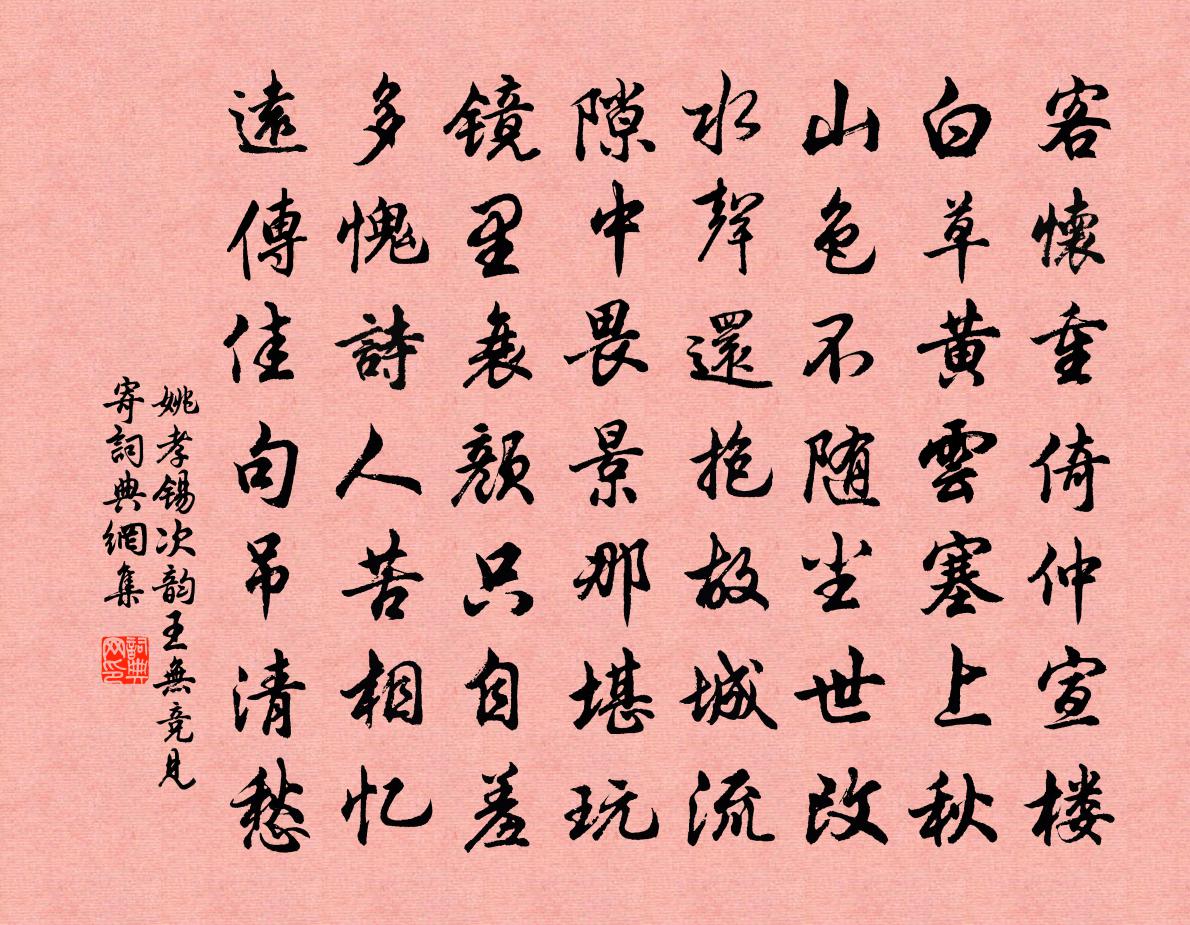 客懷重倚仲宣楼
白草黄雲塞上秋
山色不随尘世改
水聲還抱故城流
隙中畏景那堪玩
镜里衰颜只自羞
多愧詩人苦相忆
遠傳佳句吊清愁
姚孝锡次韵王無竞見
寄詞典網集
詞典网印